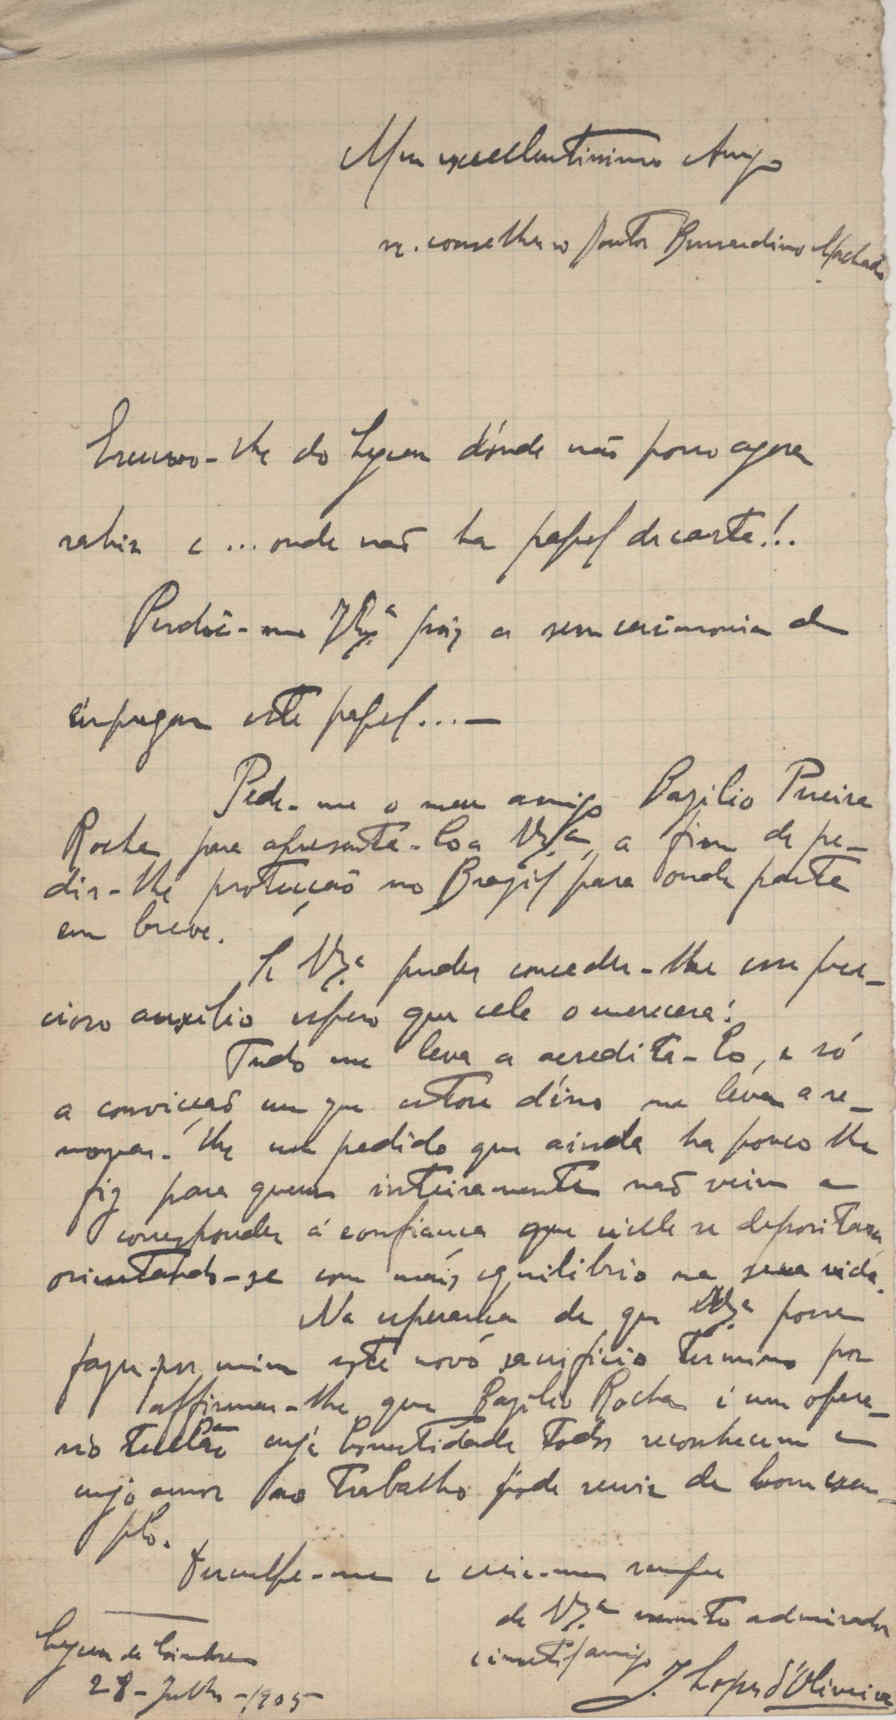 Meu excellentissimo Amigo
sr. conselheiro Doutor Bernardino Machado
Escrevo-lhe do Lyceu d'onde não posso agora
sahir e ... onde não ha papel de carta!..
Perdôe-me V. Ex.ª pois a sem cerimonia de
empregar este papel...—
Pede-me o meu amigo Bazilio Pereira
Rocha para apresenta-lo a V. Ex.ª, a fim de pe-
dir-lhe protecção no Brazil para onde parte
em breve.
Se V. Ex.ª puder conceder-lhe esse pre-
cioso auxilio espero que elle o merecerá!
Tudo me leva a acredita-lo, e só
a convicção em que estou d'isso me leva a re-
novar-lhe um pedido que ainda ha pouco lhe
fiz para quem inteiramente não veiu a
corresponder á confiança que n'elle se depositara,
orientando-se com mais equilibrio na sua vida.
Na esperança de que V. Ex.ª possa
fazer por mim este novo sacrificio termino por
affirmar-lhe que Bazilio Rocha é um opera-
rio cuja honestidade todos reconhecem e
cujo amor ao trabalho póde servir de bom exem-
plo.
Desculpe-me e creia-me sempre
de V. Ex.ª muito admirador
Lyceu de Coimbra
28-Julho-1905
J. Lopes d'Oliveira